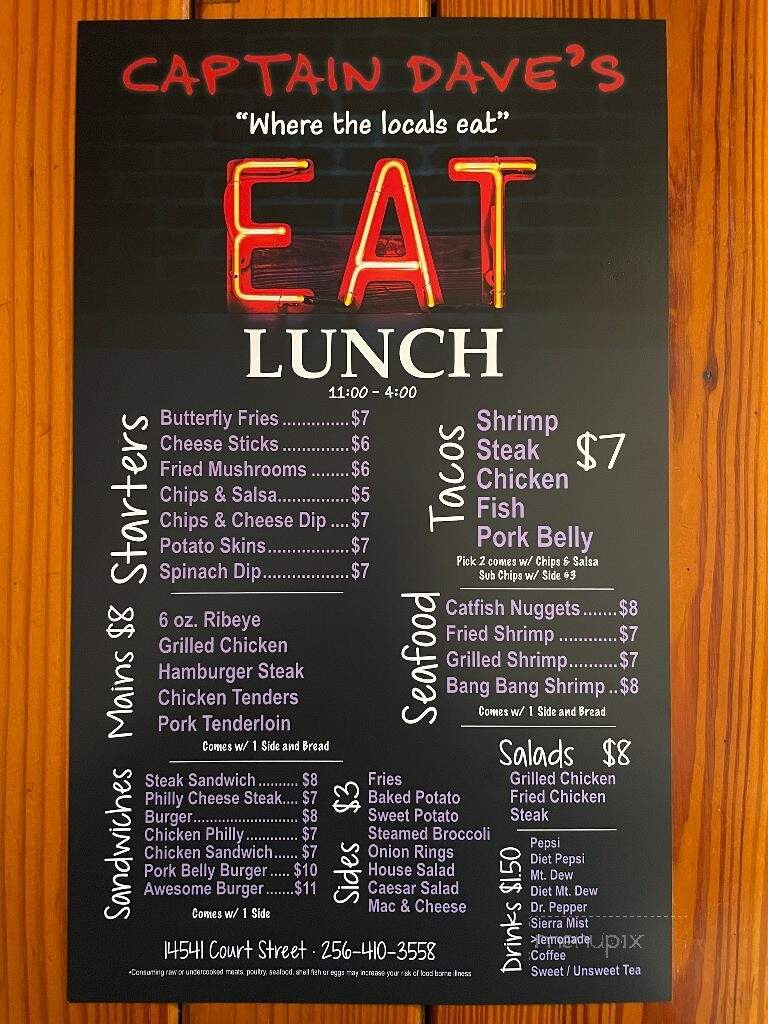 CAPTAIN DAVE'S
"Where the locals eat"
EAT
LUNCH
11:00 - 4:00
Starters
Butterfly Fries ..............$7
Cheese Sticks ..............$6
Fried Mushrooms ........$6
Chips & Salsa...............$5
Chips & Cheese Dip ....$7
Potato Skins.................$7
Spinach Dip..................$7
Mains $8
6 oz. Ribeye
Grilled Chicken
Hamburger Steak
Chicken Tenders
Pork Tenderloin
Comes w/ 1 Side and Bread
Sandwiches
Steak Sandwich .......... $8
Philly Cheese Steak.... $7
Burger.......................... $8
Chicken Philly............. $7
Chicken Sandwich...... $7
Pork Belly Burger ..... $10
Awesome Burger .......$11
Comes w/ 1 Side
Tacos
Shrimp
Steak
Chicken
Fish
Pork Belly
$7
Pick 2 comes w/ Chips & Salsa
Sub Chips w/ Side $3
Seafood
Catfish Nuggets.......$8
Fried Shrimp ............$7
Grilled Shrimp..........$7
Bang Bang Shrimp ..$8
Comes w/ 1 Side and Bread
Salads $8
Grilled Chicken
Fried Chicken
Steak
Sides $3
Fries
Baked Potato
Sweet Potato
Steamed Broccoli
Onion Rings
House Salad
Caesar Salad
Mac & Cheese
Drinks $1.50
Pepsi
Diet Pepsi
Mt. Dew
Diet Mt. Dew
Dr. Pepper
Sierra Mist
>lemonade
Coffee
Sweet / Unsweet Tea
menupix
14541 Court Street · 256-410-3558
*Consuming raw or undercooked meats, poultry, seafood, shell fish or eggs may increase your risk of food borne illness